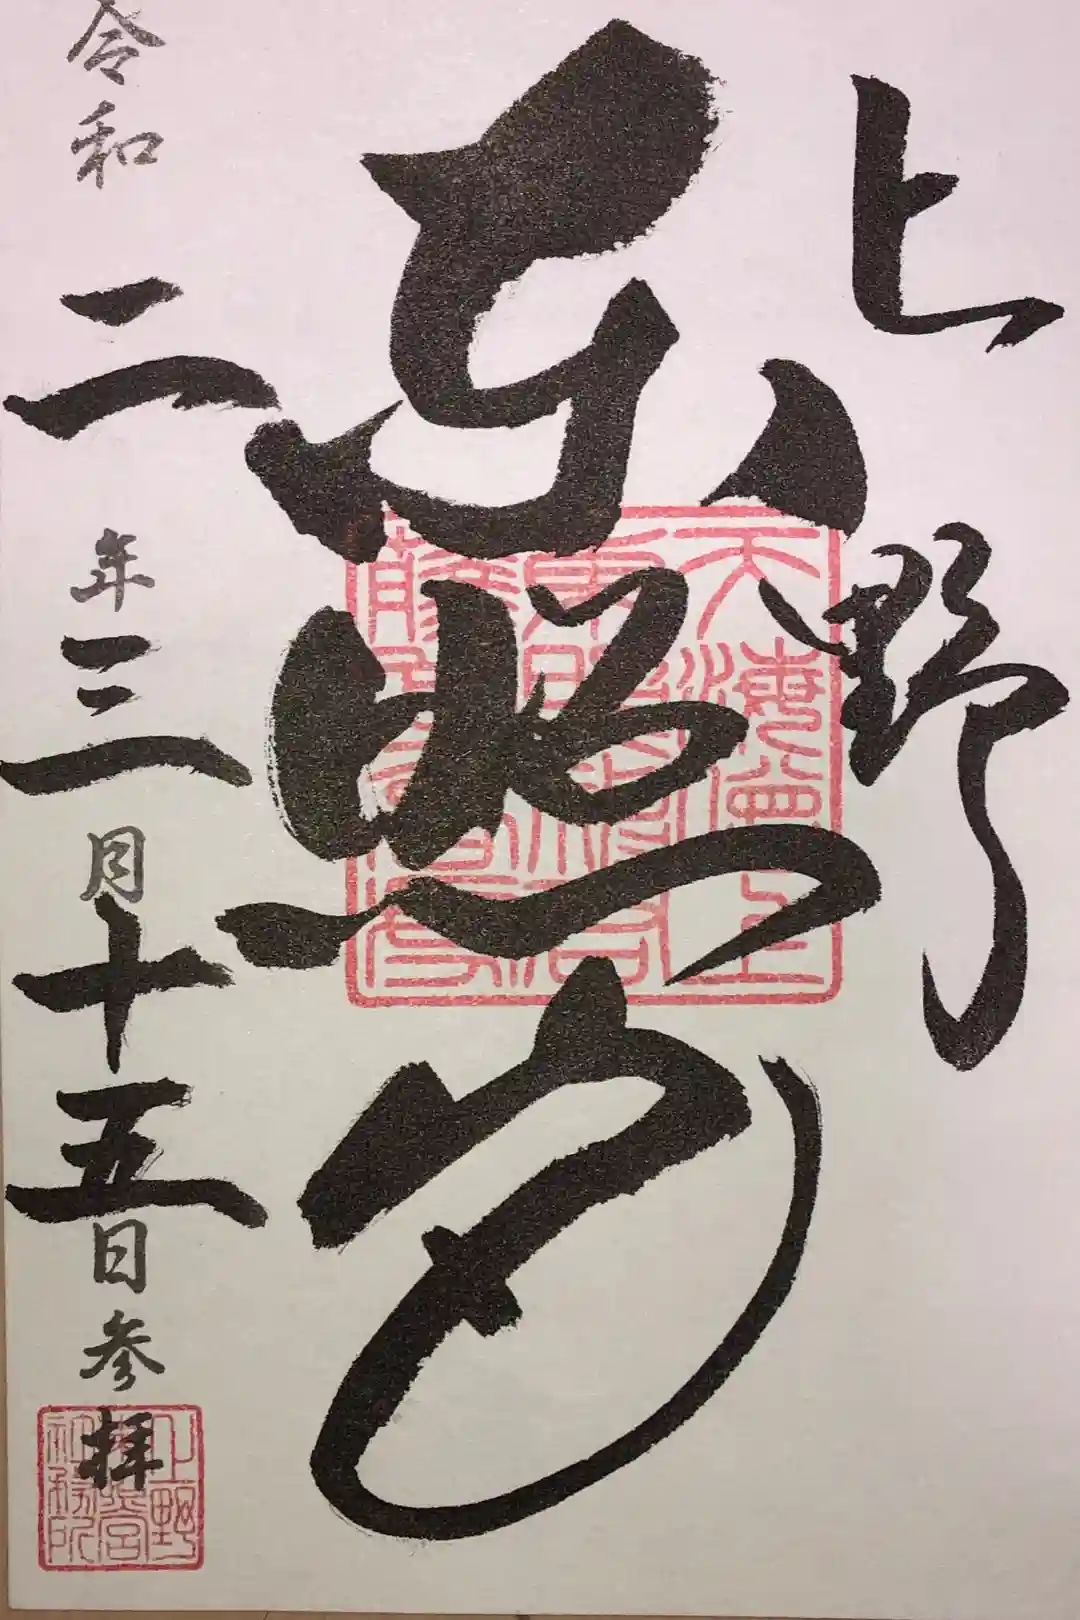 上野
東照宮
令和二年三月十五日参拝
上野
東照宮
社務所